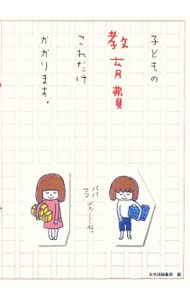 子どもの
教育費
これだけ
かかります。
パパ
ママ
よろしくね。